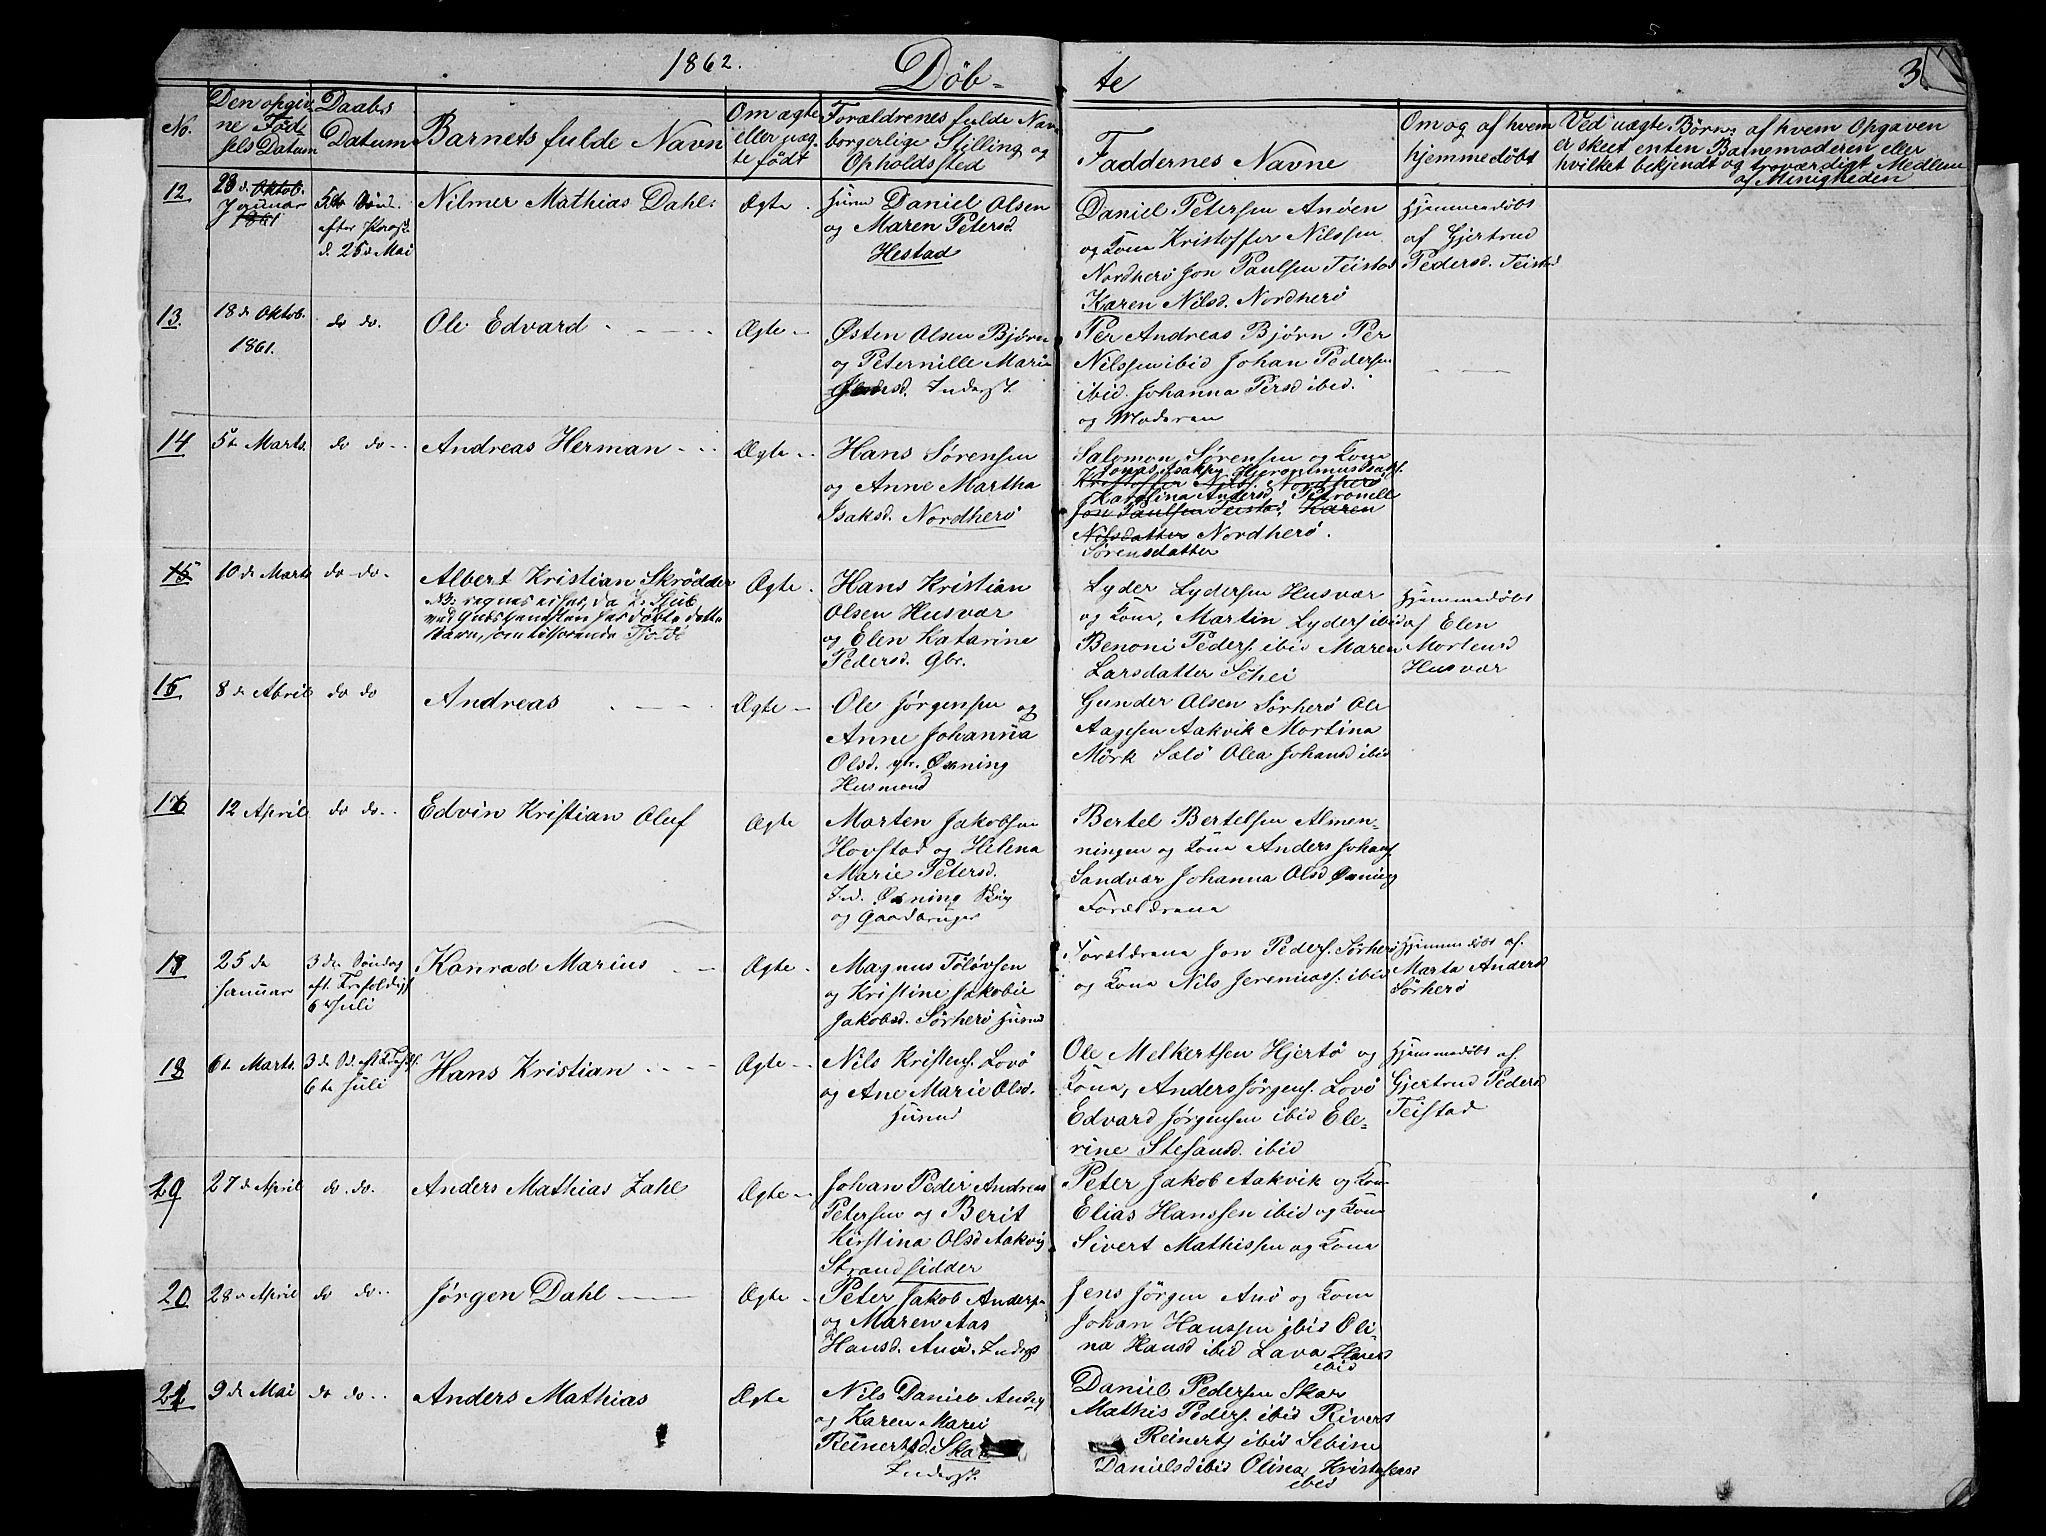 1862.
Døb-
te
3
No.
Den opgiv-
ne Fød-
sels Datum
Daabs
Datum
Barnets fulde Navn
Om ægte
eller uæg-
te født
Forældrenes fulde Navn
borgerlige Stilling og
Opholdsted
Faddernes Navne
Om og af hvem
hjemmedøbt
Ved uægte Børn: af hvem Opgaven
er skeet enten Barnemoderen eller
hvilket bekjendt og troværdigt Medlem
af Menigheden
12
23 d. Oktob.
Januar
1861
5te Sønd.
efter Paas
d. 25 de Mai
Nilmer Mathias Dahl:
Ægte
Husm Daniel Olsen
og Maren Petersd.
Hestad
Daniel Petersen Anöen
og Kona Kristoffer Nilssen
Nordherö Jon Paulsen Teistad
Karen Nilsd. Nordherö
Hjemmedøbt
af Gjertrud
Pedersd. Teistad
13.
18 de Oktob.
1861.
do do.
Ole Edvard
Ægte
Østen Olsen Bjørn
og Peternille Marie
Inderst.
Per Andreas Bjørn Per
Nilssen ibid Johan Pedersen
ibid. Johanna Persd ibid.
og Moderen
14
5te Marts.
do do
Andreas Herman
Ægte
Hans Sørensen
og Anne Martha
Isaksd. Nordherö
Salomon Sørensen og Kona
Jonas Isaks og Hjeronimus Isaks.
Kristoffer Nils. Nordherö
Karolina Andersd Petronelle
Jon Paulsen Teistad, Karen
Nilsdatter Nordherö.
Sörensdatter
15
10 de Marts
do do.
Albert Kristian Skrödder
Ægte
Hans Kristian
Olsen Husvær
og Elen Katarine
Pedersd. Gbr.
Lyder Lydersen Husvær
og Kona, Martin Lyders ibid
Benoni Peders. ibid Maren
Larsdatter Schei
Hjemmedøbt
af Elen
Mortensd
Husvær
15
8 de Abril
do do
Andreas
Ægte
Ole Jørgensen og
Anne Johanna
Olsd. gbr. Øxning
Husmand
Gunder Olsen Sørherö Ole
Aagesen Aakvik Mortina
Mörk Sælö Olea Johansd ibid
17
12 April
do do.
Edvin Kristian Oluf
Ægte
Morten Jakobsen
Hovstad og Helena
Marie Petersd.
Ind. Øxning
og Gaardbruger
Bertel Bertelsen Almen-
ningen og Kona Anders Johans
Sandvær Johanna Olsd Øxning
Forældrene
18
25 de
Januar
3 de Søndag
eft. Trefoldigh
6te Juli
Konrad Marius
Ægte
Magnus Tolövsen
og Kristine Jakobie
Jakobsd. Sørherö Husmd
Forældrene Jon Peders. Sørherö
og Kona Nils Jeremiass. ibid
Hjemmedøbt af.
Marta Anders
Sørherö
18
6te Marts.
3 de S. eft Trefold.
6te Juli
Hans Kristian
Ægte
Nils Kristens. Lovö
og Ane Marie Olsd.
Husmd
Ole Melkertsen Hjertö og
Kona, Anders Jørgens. Lovö
Edvard Jørgensen ibid Ele-
rine Stefansd. ibid
Hjemmedøbt af.
Gjertrud Peders
Teistad
29
27 de April
do. do.
Anders Mathias Zahl
Ægte
Johan Peder Andreas
Petersen og Berit
Kirstina Olsd Aakvig
Strandsidder
Peter Jakob Aakvik og Kona
Elias Hanssen ibid og Kona
Sivert Mathissen og Kona
20
28 de April
do do
Jørgen Dahl
Ægte
Peter Jakob Anders.
og Maren Aas
Hansd. Anö. Inderst
Jens Jörgen Anö og Kona
Johan Hanssen ibid Oli-
na Hansd ibid Lava Hansd
ibid
21
9 de Mai
do do
Anders Mathias
Ægte
Nils Daniel Anders
og Karen Marei
Reinertsd. Skar
Inderst.
Daniel Pedersen Skar
Mathis Peders. ibid Sivert
Reinerts ibid Sebine
Danielsd ibid Olina Kristofersd
ibid